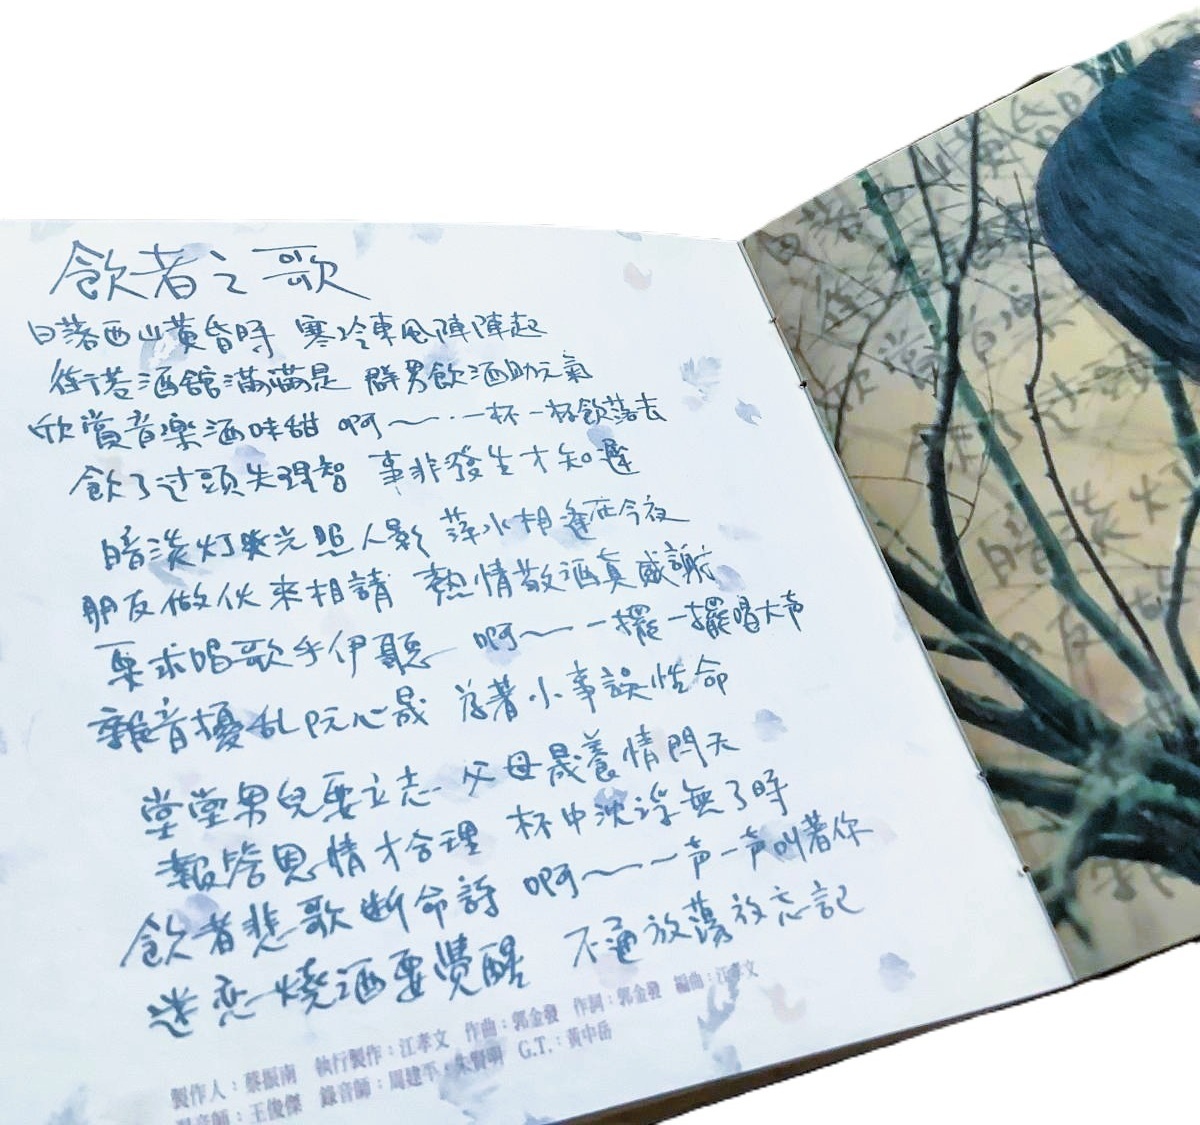 飲者之歌
日落西山黃昏時 寒冷東風陣陣起
街巷酒館滿滿是 群男飲酒助元氣
欣賞音樂酒味甜 啊~~一杯一杯飲落去
飲了过頭失理智 事非發生才知遲
暗淡灯光照人影 萍水相逢在今夜
朋友做伙來相請 熱情敬酒真感謝
要求唱歌乎伊聽 啊~~一擺一擺唱大声
雜音擾乱阮心晟 為著小事誤性命
堂堂男兒要立志 父母晟養情問天
報答恩情才合理 杯中沈浮無了時
飲者悲歌斷命詩 啊~~一声一声叫著你
迷恋燒酒要覺醒 不通放蕩放忘記
製作人:蔡振南 執行製作:江孝文 作曲:郭金發 作詞:郭金發 編曲:江孝文
音師:王俊傑 錄音師:周建平、朱賢明 G.T.:黃中岳